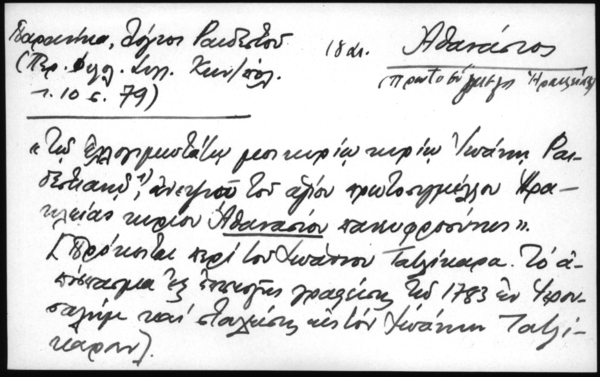 Λόγιος Ραιδεστού
(Περ. Φιλλ. Συλ. Κων/πόλ.
τ. 10 σ. 79)
18 αι.
Ἀθανάσιος
(πρωτοσύγκελλος Ἡρακλείας)
«Τῷ ἐλλογιμωτάτῳ μοι κυρίῳ κυρίῳ Ἰωάννῃ Ραι-
δεστιανῷ¹⁾, ἀνεψιῷ τοῦ ἁγίου πρωτοσυγκέλλου Ἡρα-
κλείας κυρίου Ἀθανασίου πανευφροσύνως».
[Πρόκειται περὶ τοῦ Ἰωάννου Τατζίκαρα. Τὸ ἀ-
πόσπασμα ἐξ ἐπιστολῆς γραφείσης τῷ 1783 ἐν Ἱερου-
σαλὴμ καὶ σταλείσης εἰς τὸν Ἰωάννην Τατζί-
καραν].